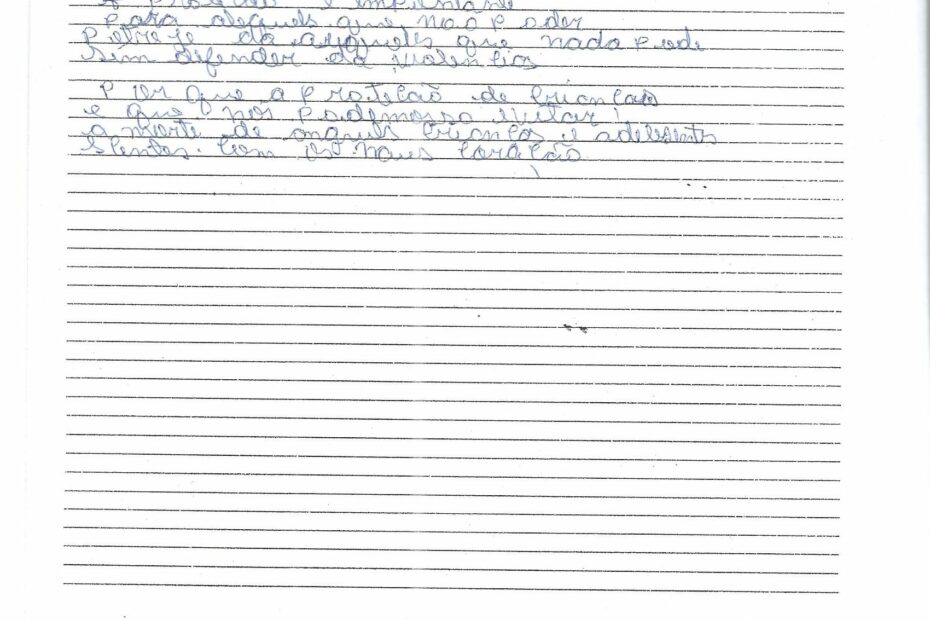 A proteção é importante
para alequels que não poder
Petreje da aqueles que nada pode
Sem defender da violencias
P or que a proteleão de crianças
e que nos podemosso evitar
a morte de crianços e adelesents
Com os nous coração